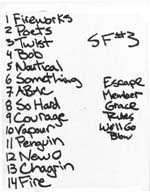 1 Fireworks
2 Poets
3 Twist
4 Bob
5 Nautical
6 Something
7 ABAC
8 So Hard
9 Courage
10 Vapour
11 Penguin
12 New O
13 Chagrin
14 Fire
SF#3
Escape
Member
Grace
Rules
We'll Go
Blow